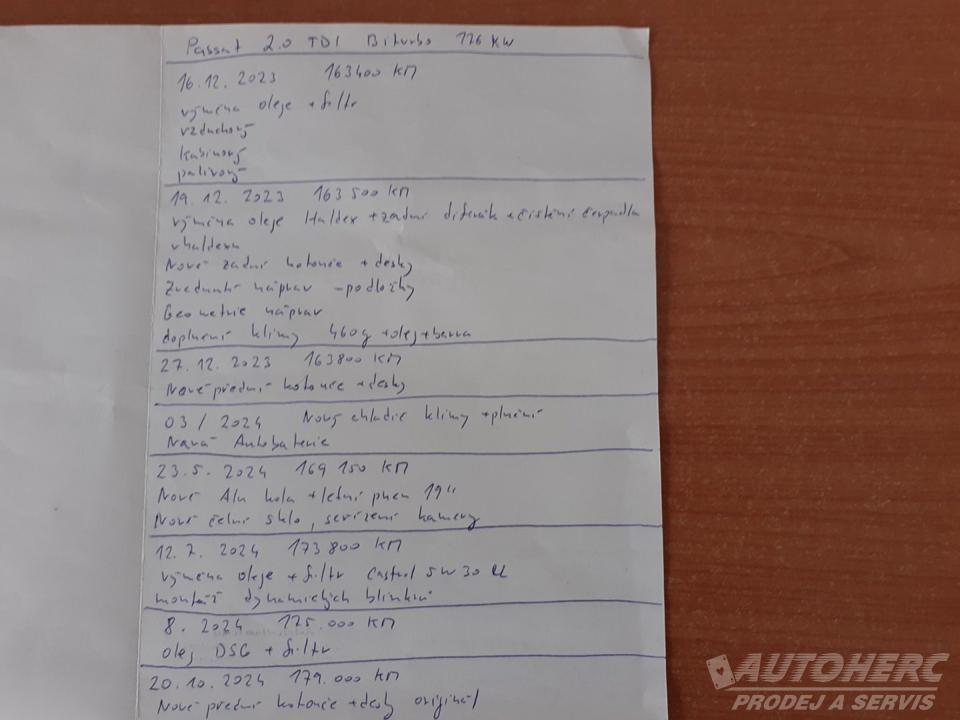 Passat 2.0 TDI Biturbo 176 KW
16.12. 2023 163400 KM
výměna oleje + filtr
vzduchový
kabinový
palivový
19.12. 2023 163 500 KM
výměna oleje Haldex + zadní difernk + čistění čerpadla
v haldexu
Nové zadní kotouče + desky
Zvednutí náprav - podložky
Geometrie náprav
doplnění klimy 460g + olej + barva
27.12. 2023 163800 KM
Nové přední kotouče + desky
03 / 2024 Nový chladič klimy + plnění
Nová Autobaterie
23.5. 2024 169 150 KM
Nové Alu kola + letní pneu 19"
Nové čelní sklo, seřízení kamery
12.7. 2024 173 800 KM
výměna oleje + filtr Castrol 5W30 LL
montáž dynamických blinkrů
8. 2024 175.000 KM
olej DSG + filtr
20.10. 2024 179.000 KM
Nové přední kotouče + desky originál
AUTOHERC
PRODEJ A SERVIS